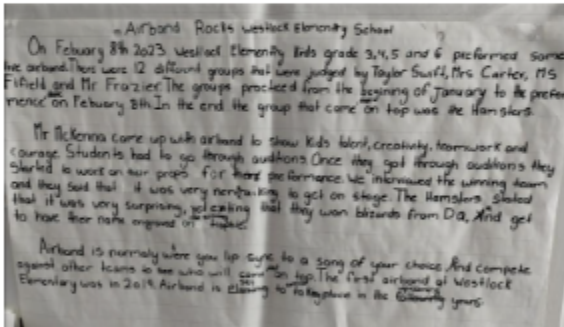 Airband Rocks Westlock Elementry School
On Febuary 8th 2023 Westlock Elementry kids grade 3,4,5 and 6 preformed some
live airband. There were 12 different groups that were judged by Taylor Swift, Mrs Carter, MS
Fifield and Mr Frazier. The groups practiced from the begining of January to the prefor
mence on Febuary 8th. In the end the group that came on top was the Hamsters.
Mr McKenna came up with airband to show kids talent, creativity, teamwork and
courage. Students had to go through auditions. Once they got through auditions they
started to work on our props for preformance. We interviewed the winning team
and they said that it was very to get on stage. The Hamsters stated
that it was very surprising, that they won blizards from DQ, And get
to have ther name engraved on
Airband is normaly were you lip sync to a song of your choice. And compete
against other teams to see who will come on top. The first airband at Westlock
Elementary was in 2019. Airband is to take place in the years.